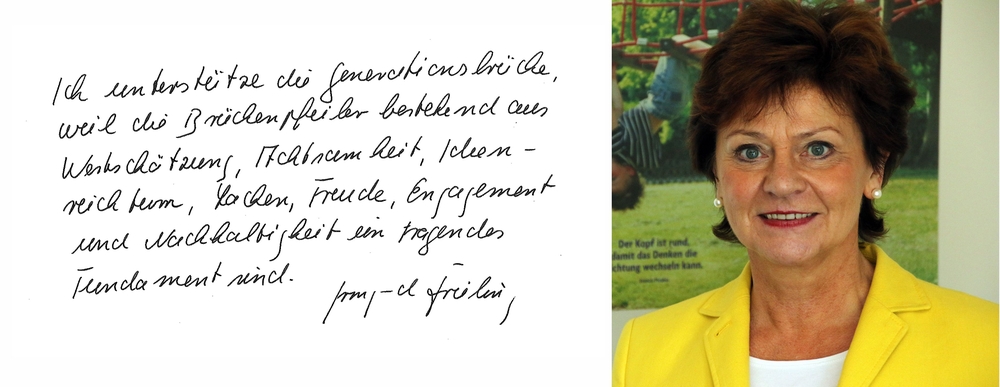 Ich unterstütze die Generationsbrücke,
weil die Brückenpfeiler bestehend aus
Wertschätzung, Achtsamkeit, Ideen-
reichtum, Lachen, Freude, Engagement
und Nachhaltigkeit ein tragendes
Fundament sind.
Der Kopf ist rund,
damit das Denken die
chtung wechseln kann.